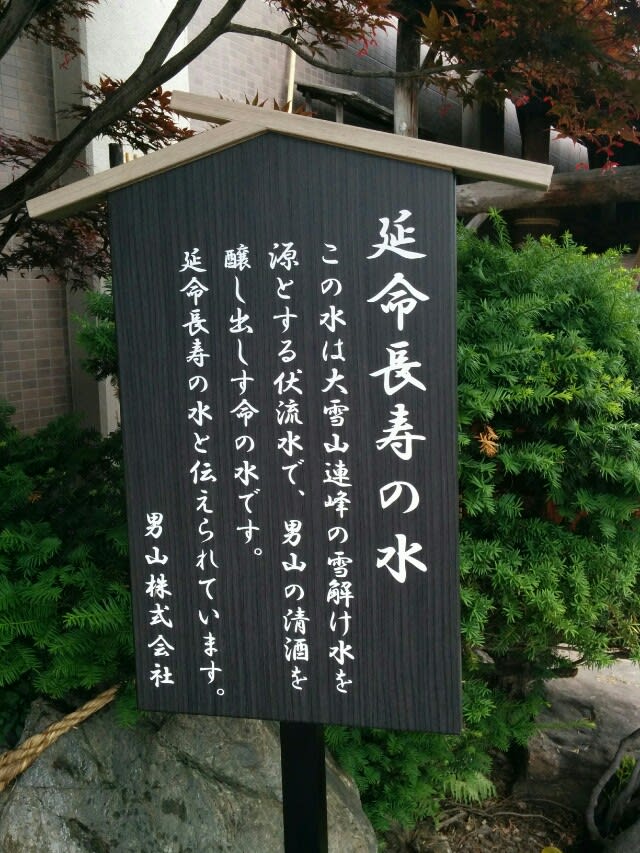 延命長寿の水
この水は大雪山連峰の雪解け水を
源とする伏流水で、男山の清酒を
醸し出しす命の水です。
延命長寿の水と伝えられています。
男山株式会社